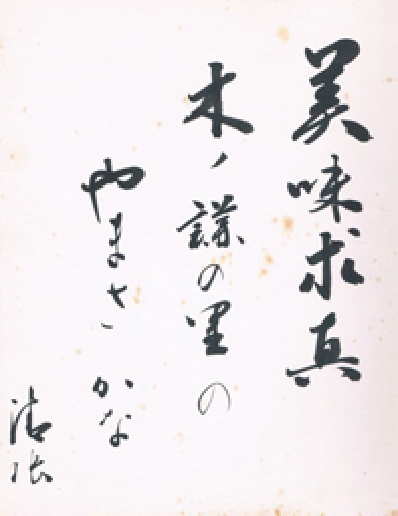 美味求真
木ノ諜の里の
やまさかな